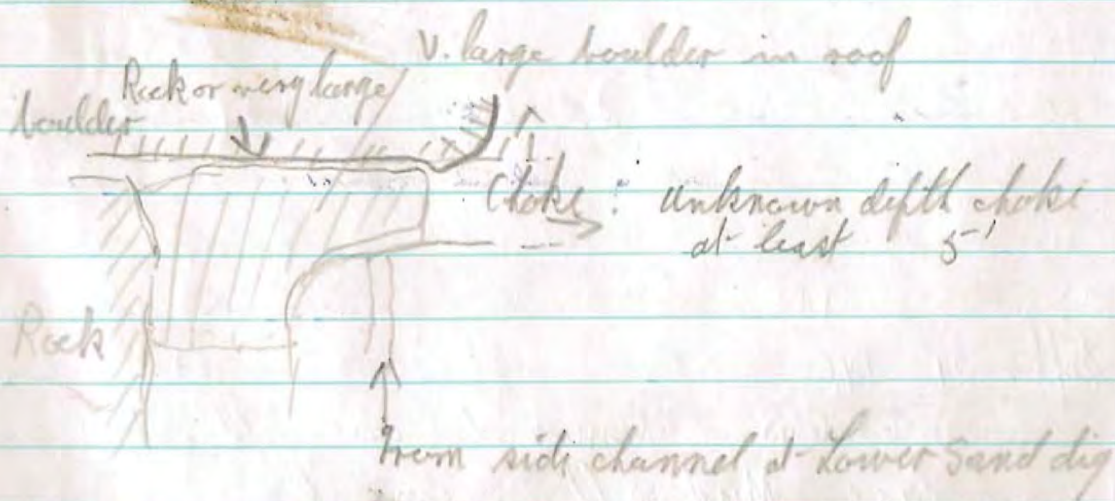 V. large boulder in roof
Rock or very large
boulder
Choke : unknown depth choke
at least 5'
Rock
From side channel at Lower Sand dig